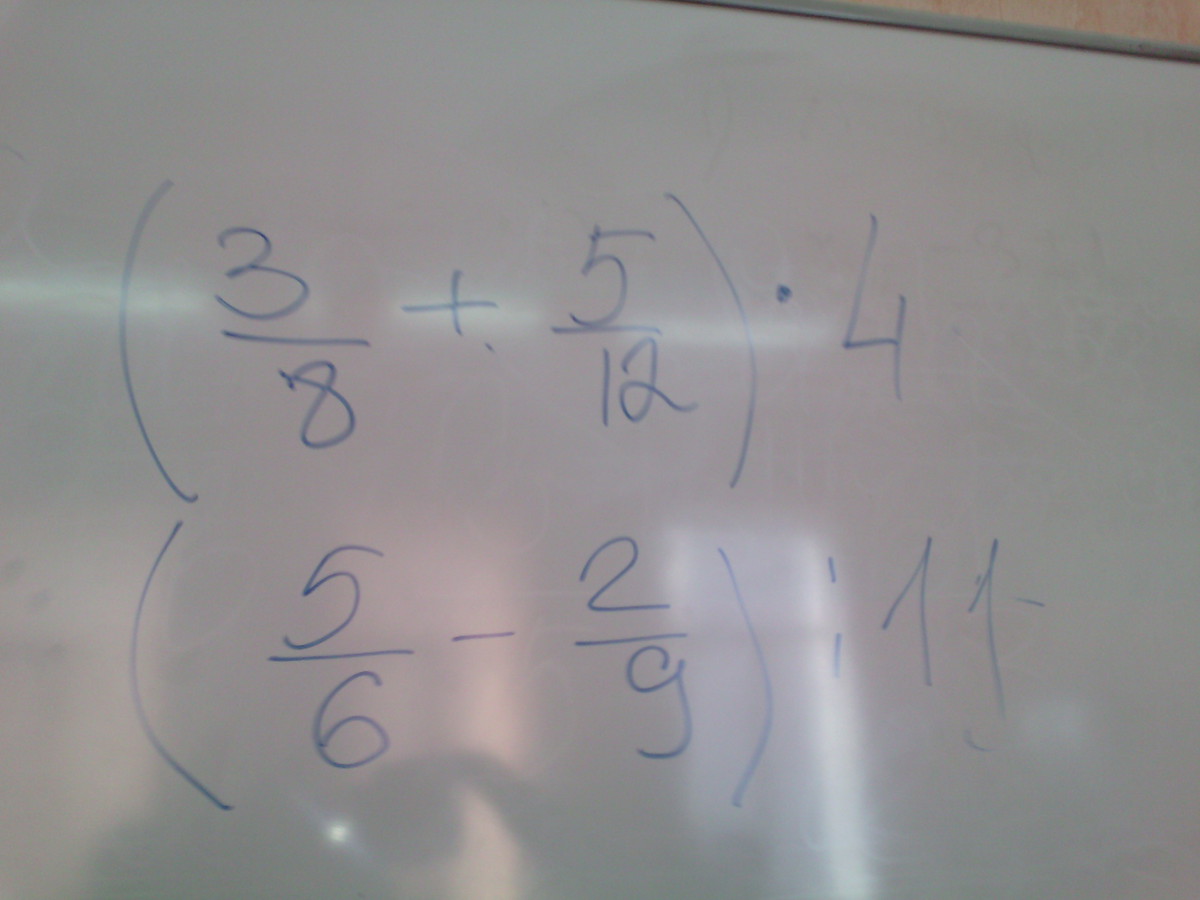 (3/8 + 5/12) · 4
(5/6 - 2/9) : 11